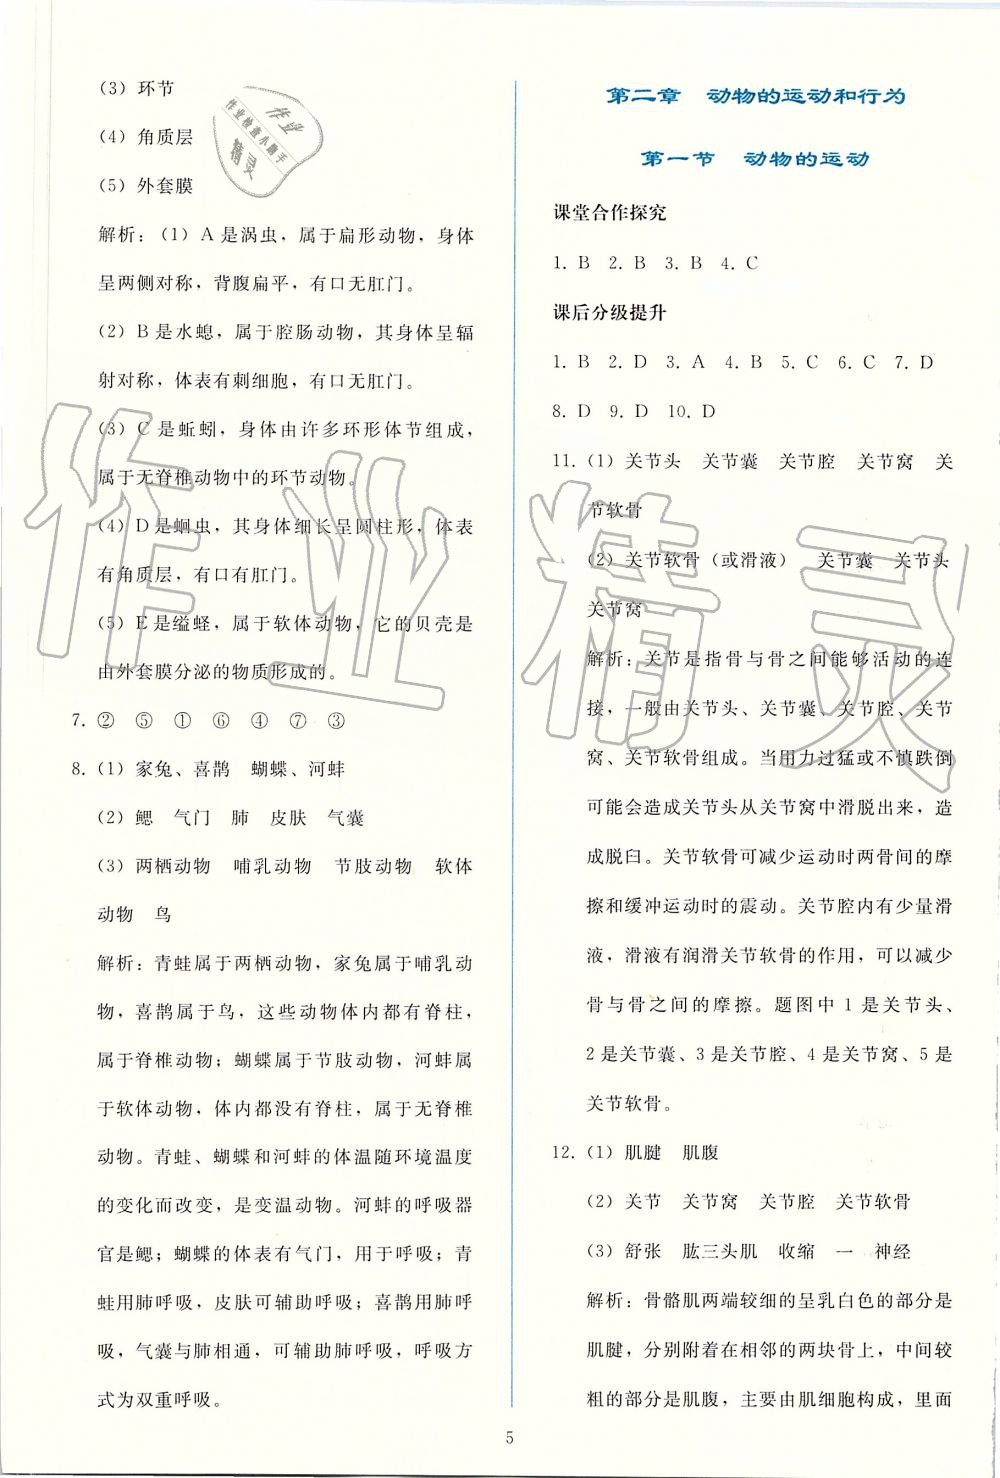 (3) 环节
(4) 角质层
(5) 外套膜
解析：(1) A 是涡虫，属于扁形动物，身体
呈两侧对称，背腹扁平，有口无肛门。
(2) B 是水螅，属于腔肠动物，其身体呈辐
射对称，体表有刺细胞，有口无肛门。
(3) C 是蚯蚓，身体由许多环形体节组成，
属于无脊椎动物中的环节动物。
(4) D 是蛔虫，其身体细长呈圆柱形，体表
有角质层，有口有肛门。
(5) E 是缢蛏，属于软体动物，它的贝壳是
由外套膜分泌的物质形成的。
7. ② ⑤ ① ⑥ ④ ⑦ ③
8. (1) 家兔、喜鹊 蝴蝶、河蚌
(2) 鳃 气门 肺 皮肤 气囊
(3) 两栖动物 哺乳动物 节肢动物 软体
动物 鸟
解析：青蛙属于两栖动物，家兔属于哺乳动
物，喜鹊属于鸟，这些动物体内都有脊柱，
属于脊椎动物；蝴蝶属于节肢动物，河蚌属
于软体动物，体内都没有脊柱，属于无脊椎
动物。青蛙、蝴蝶和河蚌的体温随环境温度
的变化而改变，是变温动物。河蚌的呼吸器
官是鳃；蝴蝶的体表有气门，用于呼吸；青
蛙用肺呼吸，皮肤可辅助呼吸；喜鹊用肺呼
吸，气囊与肺相通，可辅助肺呼吸，呼吸方
式为双重呼吸。
第二章 动物的运动和行为
第一节 动物的运动
课堂合作探究
1. B 2. B 3. B 4. C
课后分级提升
1. B 2. D 3. A 4. B 5. C 6. C 7. D
8. D 9. D 10. D
11. (1) 关节头 关节囊 关节腔 关节窝 关
节软骨
(2) 关节软骨（或滑液） 关节囊 关节头
关节窝
解析：关节是指骨与骨之间能够活动的连
接，一般由关节头、关节囊、关节腔、关节
窝、关节软骨组成。当用力过猛或不慎跌倒
可能会造成关节头从关节窝中滑脱出来，造
成脱臼。关节软骨可减少运动时两骨间的摩
擦和缓冲运动时的震动。关节腔内有少量滑
液，滑液有润滑关节软骨的作用，可以减少
骨与骨之间的摩擦。题图中 1 是关节头、
2 是关节囊、3 是关节腔、4 是关节窝、5 是
关节软骨。
12. (1) 肌腱 肌腹
(2) 关节 关节窝 关节腔 关节软骨
(3) 舒张 肱三头肌 收缩 一 神经
解析：骨骼肌两端较细的呈乳白色的部分是
肌腱，分别附着在相邻的两块骨上，中间较
粗的部分是肌腹，主要由肌细胞构成，里面
5
作业
作业检查小助手
精灵
作业精灵